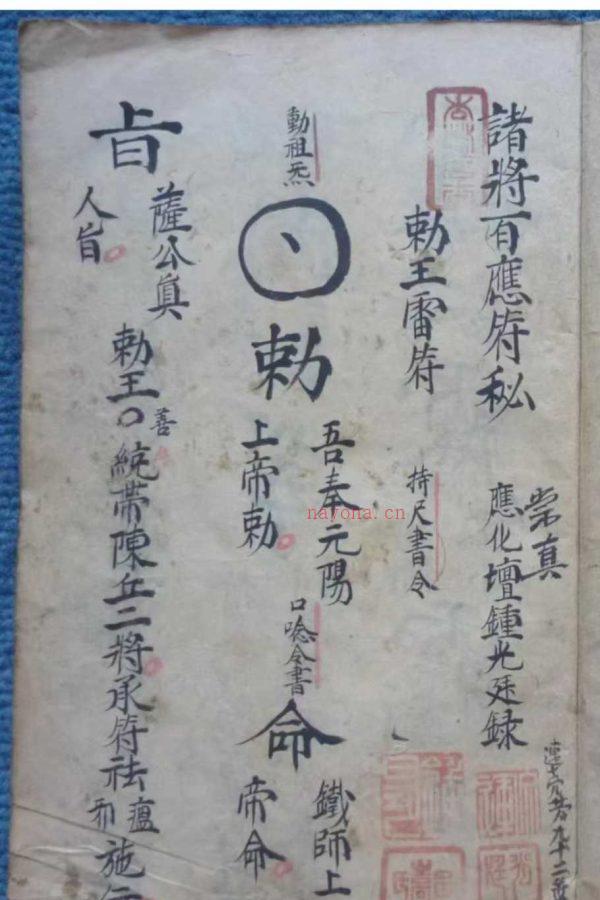 諸將百應符秘
崇真
應化壇鍾光廷録
敕王雷符
持尺書令
動祖炁
敕
吾奉元陽
上帝敕
口唸令書
命
鐵師上
帝命
旨
薩公真
人旨
敕王〇善
統帶陳丘二將承符祛瘟
邪
施行
nayona.cn